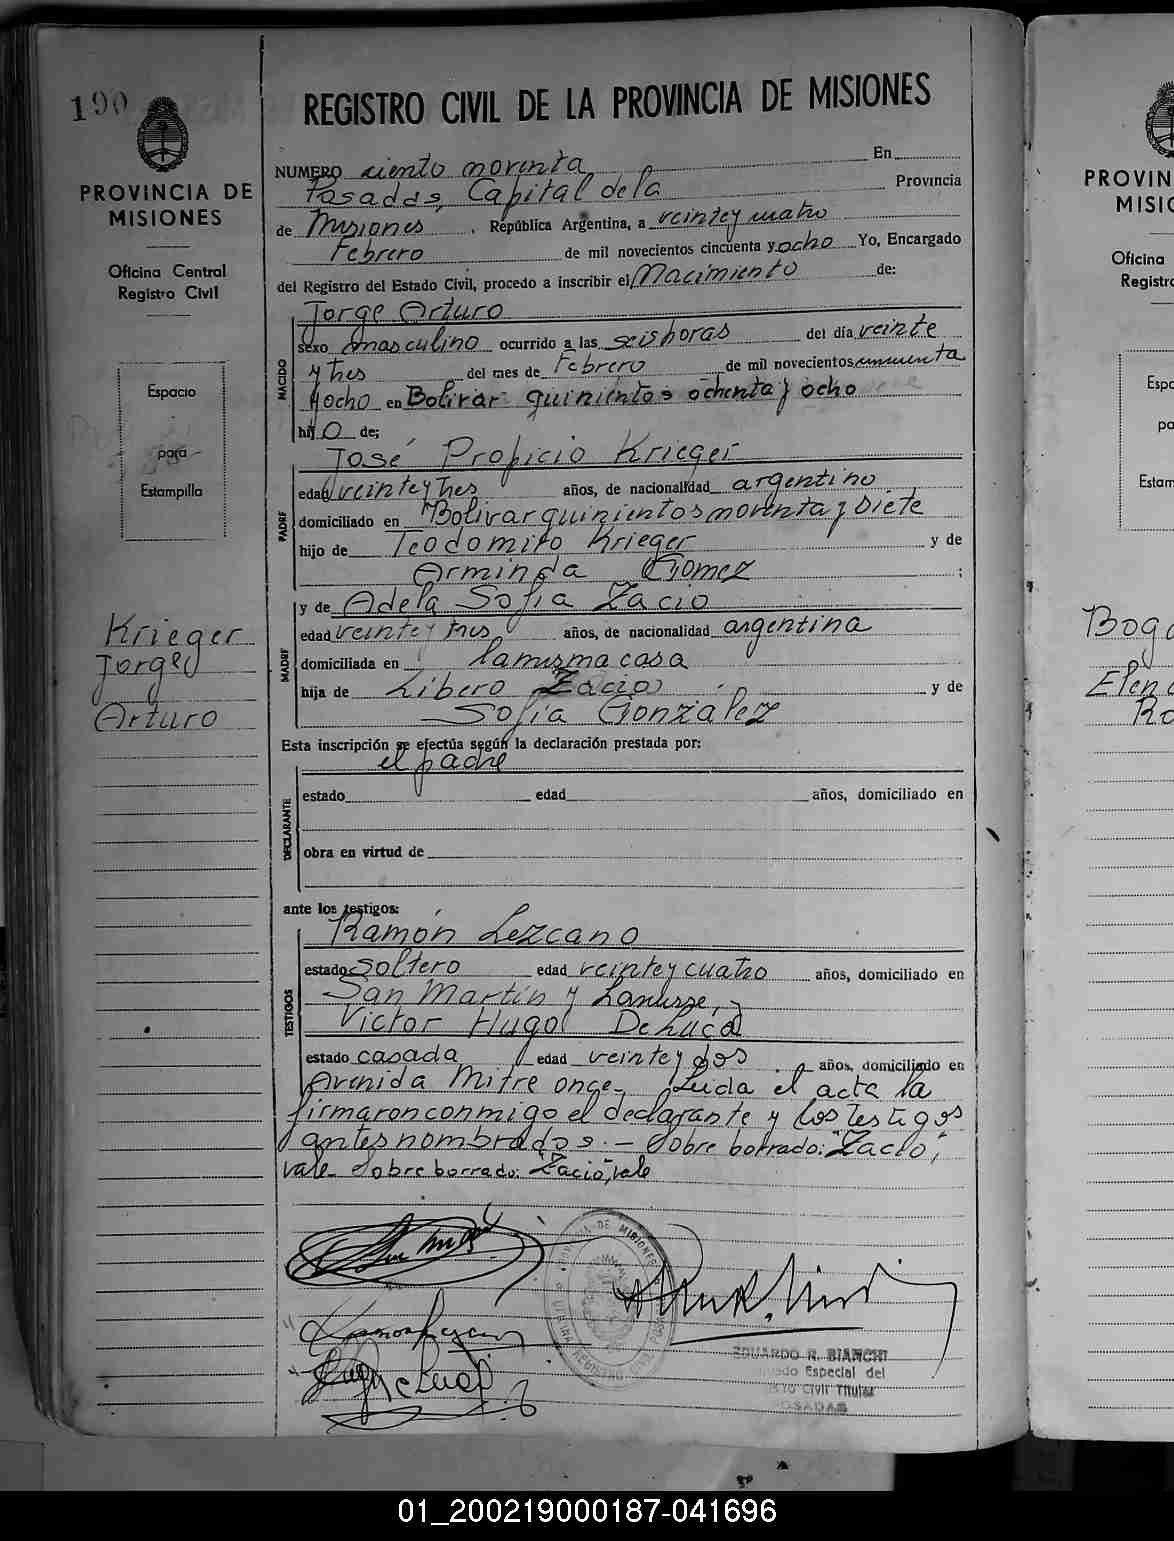 190
PROVINCIA DE
MISIONES
Oficina Central
Registro Civil
Espacio
para
Estampilla
Krieger
Jorge
Arturo
REGISTRO CIVIL DE LA PROVINCIA DE MISIONES
NUMERO ciento noventa En
Posadas, Capital de la Provincia
de Misiones, República Argentina, a veinte y cuatro
Febrero de mil novecientos cincuenta y ocho Yo, Encargado
del Registro del Estado Civil, procedo a inscribir el Nacimiento de:
NACIDO
Jorge Arturo
sexo masculino ocurrido a las seis horas del día veinte
y tres del mes de Febrero de mil novecientos cincuenta
y ocho en Bolivar quinientos ochenta y ocho
hijo de;
PADRE
José Propicio Krieger
edad veinte y tres años, de nacionalidad argentino
domiciliado en Bolivar quinientos noventa y siete
hijo de Teodomiro Krieger y de
Arminda Gomez ;
MADRE
y de Adela Sofia Zacio
edad veinte y tres años, de nacionalidad argentina
domiciliada en la misma casa
hija de Libero Zacio y de
Sofia Gonzalez
Esta inscripción se efectúa según la declaración prestada por:
el padre
DECLARANTE
estado edad años, domiciliado en
obra en virtud de
ante los testigos:
TESTIGOS
Ramón Lezcano
estado soltero edad veinte y cuatro años, domiciliado en
San Martín y Lanusse, y
Victor Hugo De Luca
estado casada edad veinte y dos años, domiciliado en
Avenida Mitre once. Leida el acta la
firmaron conmigo el declarante y los testigos
antes nombrados.- Sobre borrado: "Zacio",
vale. Sobre borrado: Zacio, vale
PROVINCIA DE MISIONES
EDUARDO R. BIANCHI
Especial del
Civil Titular
POSADAS
PROVIN
MISIO
Oficina
Registro
Espa
pa
Estam
Boga
Elena
Ro
01_200219000187-041696